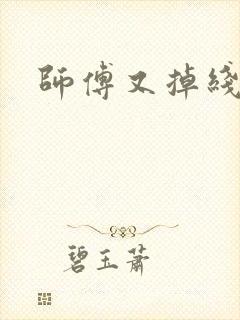 師傅又掉綫
碧玉蕭